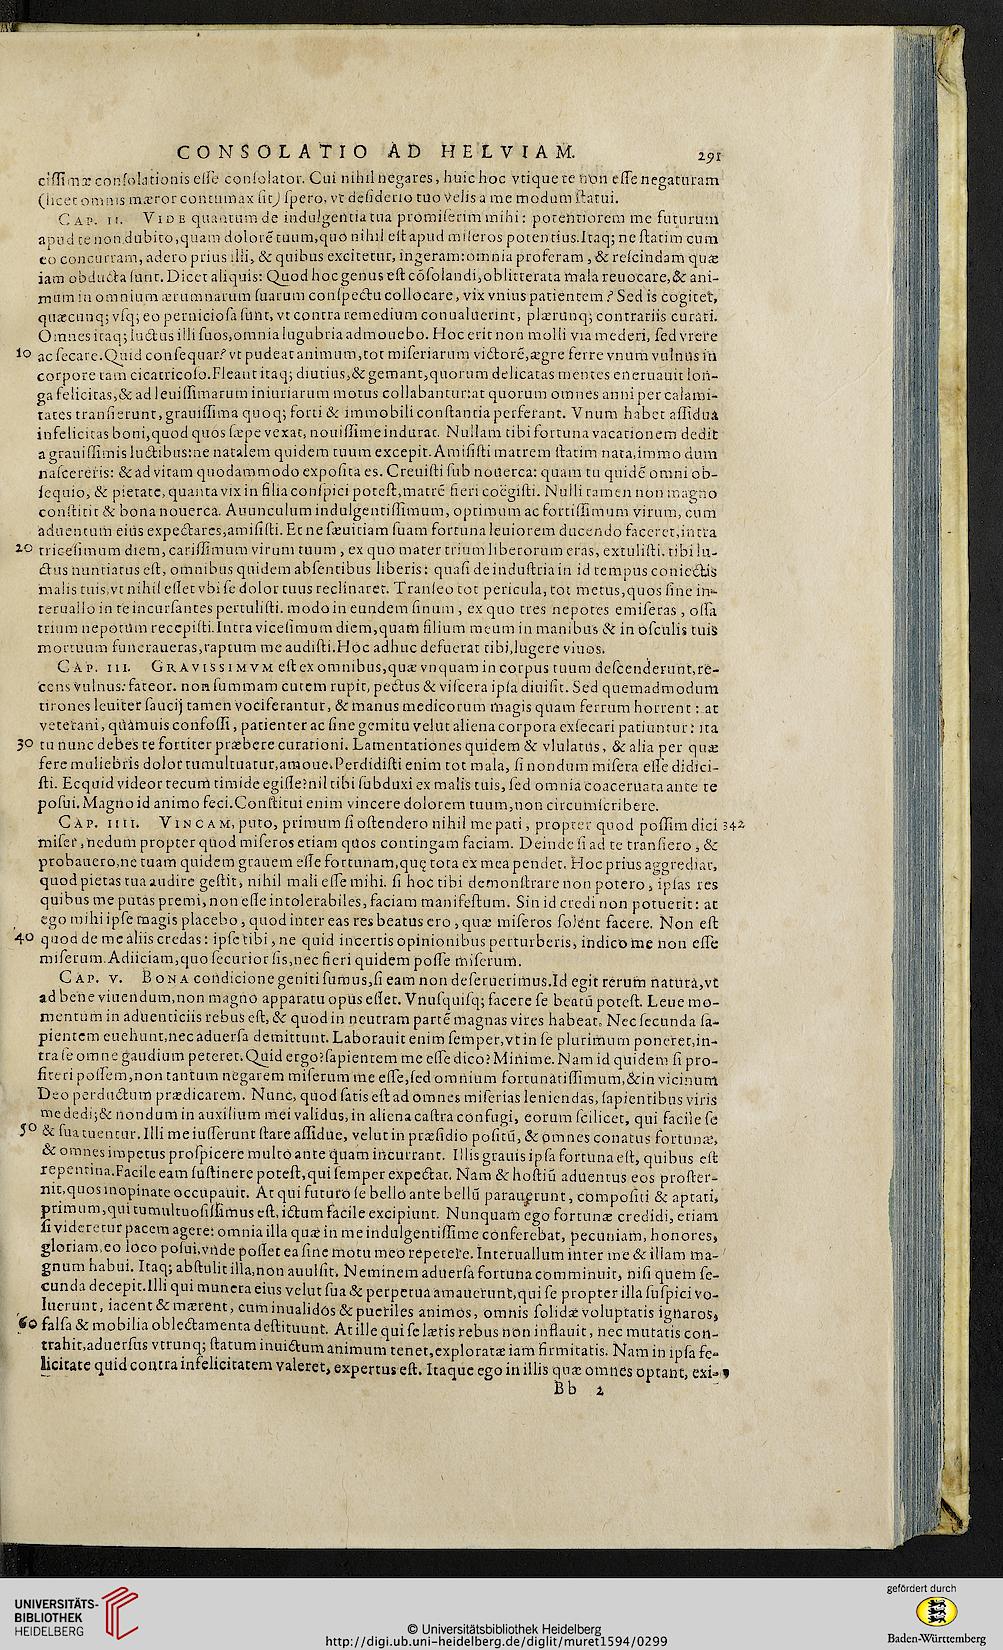 CONSOLATIO AD HELVIAM. 291
ciſſimæ conſolationis eſſe conſolator. Cui nihil negares, huic hoc vtique te non eſſe negaturam
(licet omnis mæror contumax ſit) ſpero, vt deſiderio tuo velis a me modum ſtatui.
CAP. II. VIDE quantum de indulgentia tua promiſerim mihi: potentiorem me futurum
apud te non dubito, quam dolorẽ tuum, quo nihil eſt apud miſeros potentius. Itaq; ne ſtatim cum
eo concurram, adero prius illi, & quibus excitetur, ingeram: omnia proferam, & reſcindam quæ
iam obducta ſunt. Dicet aliquis: Quod hoc genus eſt cõſolandi, oblitterata mala reuocare, & ani-
mum in omnium ærumnarum ſuarum conſpectu collocare, vix vnius patientem? Sed is cogitet,
quæcunq; vſq; eo pernicioſa ſunt, vt contra remedium conualuerint, plærunq; contrariis curari.
Omnes itaq; luctus illi ſuos, omnia lugubria admouebo. Hoc erit non molli via mederi, ſed vrere
10 ac ſecare. Quid conſequar? vt pudeat animum, tot miſeriarum victorẽ, ægre ferre vnum vulnus in
corpore tam cicatricoſo. Fleant itaq; diutius, & gemant, quorum delicatas mentes eneruauit lon-
ga felicitas, & ad leuiſſimarum iniuriarum motus collabantur: at quorum omnes anni per calami-
tates tranſierunt, grauiſſima quoq; forti & immobili conſtantia perferant. Vnum habet aſſidua
infelicitas boni, quod quos ſæpe vexat, nouiſſime indurat. Nullam tibi fortuna vacationem dedit
a grauiſſimis luctibus: ne natalem quidem tuum excepit. Amiſiſti matrem ſtatim nata, immo dum
naſcereris: & ad vitam quodammodo expoſita es. Creuiſti ſub nouerca: quam tu quidẽ omni ob-
ſequio, & pietate, quanta vix in filia conſpici poteſt, matrẽ fieri coëgiſti. Nulli tamen non magno
conſtitit & bona nouerca. Auunculum indulgentiſſimum, optimum ac fortiſſimum virum, cum
aduentum eius expectares, amiſiſti. Et ne ſæuitiam ſuam fortuna leuiorem ducendo faceret, intra
20 triceſimum diem, cariſſimum virum tuum, ex quo mater trium liberorum eras, extuliſti. tibi lu-
ctus nuntiatus eſt, omnibus quidem abſentibus liberis: quaſi de induſtria in id tempus coniectis
malis tuis, vt nihil eſſet vbi ſe dolor tuus reclinaret. Tranſeo tot pericula, tot metus, quos ſine in-
teruallo in te incurſantes pertuliſti. modo in eundem ſinum, ex quo tres nepotes emiſeras, oſſa
trium nepotum recepiſti. Intra viceſimum diem, quam filium meum in manibus & in oſculis tuis
mortuum funeraueras, raptum me audiſti. Hoc adhuc defuerat tibi, lugere viuos.
CAP. III. GRAVISSIMVM eſt ex omnibus, quæ vnquam in corpus tuum deſcenderunt, re-
cens vulnus: fateor. non ſummam cutem rupit, pectus & viſcera ipſa diuiſit. Sed quemadmodum
tirones leuiter ſaucij tamen vociferantur, & manus medicorum magis quam ferrum horrent: at
veterani, quamuis confoſſi, patienter ac ſine gemitu velut aliena corpora exſecari patiuntur: ita
30 tu nunc debes te fortiter præbere curationi. Lamentationes quidem & vlulatus, & alia per quæ
fere muliebris dolor tumultuatur, amoue. Perdidiſti enim tot mala, ſi nondum miſera eſſe didici-
ſti. Ecquid videor tecum timide egiſſe? nil tibi ſubduxi ex malis tuis, ſed omnia coaceruata ante te
poſui. Magno id animo feci. Conſtitui enim vincere dolorem tuum, non circumſcribere.
CAP. IIII. VINCAM, puto, primum ſi oſtendero nihil me pati, propter quod poſſim dici 342
miſer, nedum propter quod miſeros etiam quos contingam faciam. Deinde ſi ad te tranſiero, &
probauero, ne tuam quidem grauem eſſe fortunam, quę tota ex mea pendet. Hoc prius aggrediar,
quod pietas tua audire geſtit, nihil mali eſſe mihi. ſi hoc tibi demonſtrare non potero, ipſas res
quibus me putas premi, non eſſe intolerabiles, faciam manifeſtum. Sin id credi non potuerit: at
ego mihi ipſe magis placebo, quod inter eas res beatus ero, quæ miſeros ſolent facere. Non eſt
40 quod de me aliis credas: ipſe tibi, ne quid incertis opinionibus perturberis, indico me non eſſe
miſerum. Adiiciam, quo ſecurior ſis, nec fieri quidem poſſe miſerum.
CAP. V. BONA condicione geniti ſumus, ſi eam non deſeruerimus. Id egit rerum natura, vt
ad bene viuendum, non magno apparatu opus eſſet. Vnuſquiſq; facere ſe beatũ poteſt. Leue mo-
mentum in aduenticiis rebus eſt, & quod in neutram partẽ magnas vires habeat. Nec ſecunda ſa-
pientem euehunt, nec aduerſa demittunt. Laborauit enim ſemper, vt in ſe plurimum poneret, in-
tra ſe omne gaudium peteret. Quid ergo? ſapientem me eſſe dico? Minime. Nam id quidem ſi pro-
fiteri poſſem, non tantum negarem miſerum me eſſe, ſed omnium fortunatiſſimum, & in vicinum
Deo perductum prædicarem. Nunc, quod ſatis eſt ad omnes miſerias leniendas, ſapientibus viris
me dedi; & nondum in auxilium mei validus, in aliena caſtra confugi, eorum ſcilicet, qui facile ſe
50 & ſua tuentur. Illi me iuſſerunt ſtare aſſidue, velut in præſidio poſitũ, & omnes conatus fortunæ,
& omnes impetus proſpicere multo ante quam incurrant. Illis grauis ipſa fortuna eſt, quibus eſt
repentina. Facile eam ſuſtinere poteſt, qui ſemper expectat. Nam & hoſtiũ aduentus eos proſter-
nit, quos inopinate occupauit. At qui futuro ſe bello ante bellũ parauerunt, compoſiti & aptati,
primum, qui tumultuoſiſſimus eſt, ictum facile excipiunt. Nunquam ego fortunæ credidi, etiam
ſi videretur pacem agere: omnia illa quæ in me indulgentiſſime conferebat, pecuniam, honores,
gloriam, eo loco poſui, vnde poſſet ea ſine motu meo repetere. Interuallum inter me & illam ma-
gnum habui. Itaq; abſtulit illa, non auulſit. Neminem aduerſa fortuna comminuit, niſi quem ſe-
cunda decepit. Illi qui munera eius velut ſua & perpetua amauerunt, qui ſe propter illa ſuſpici vo-
luerunt, iacent & mærent, cum inualidos & pueriles animos, omnis ſolidæ voluptatis ignaros,
60 falſa & mobilia oblectamenta deſtituunt. At ille qui ſe lætis rebus non inflauit, nec mutatis con-
trahit, aduerſus vtrunq; ſtatum inuictum animum tenet, exploratæ iam firmitatis. Nam in ipſa fe-
licitate quid contra infelicitatem valeret, expertus eſt. Itaque ego in illis quæ omnes optant, exi-
Bb 2
UNIVERSITÄTS-
BIBLIOTHEK
HEIDELBERG
© Universitätsbibliothek Heidelberg
http://digi.ub.uni-heidelberg.de/diglit/muret1594/0299
gefördert durch
Baden-Württemberg